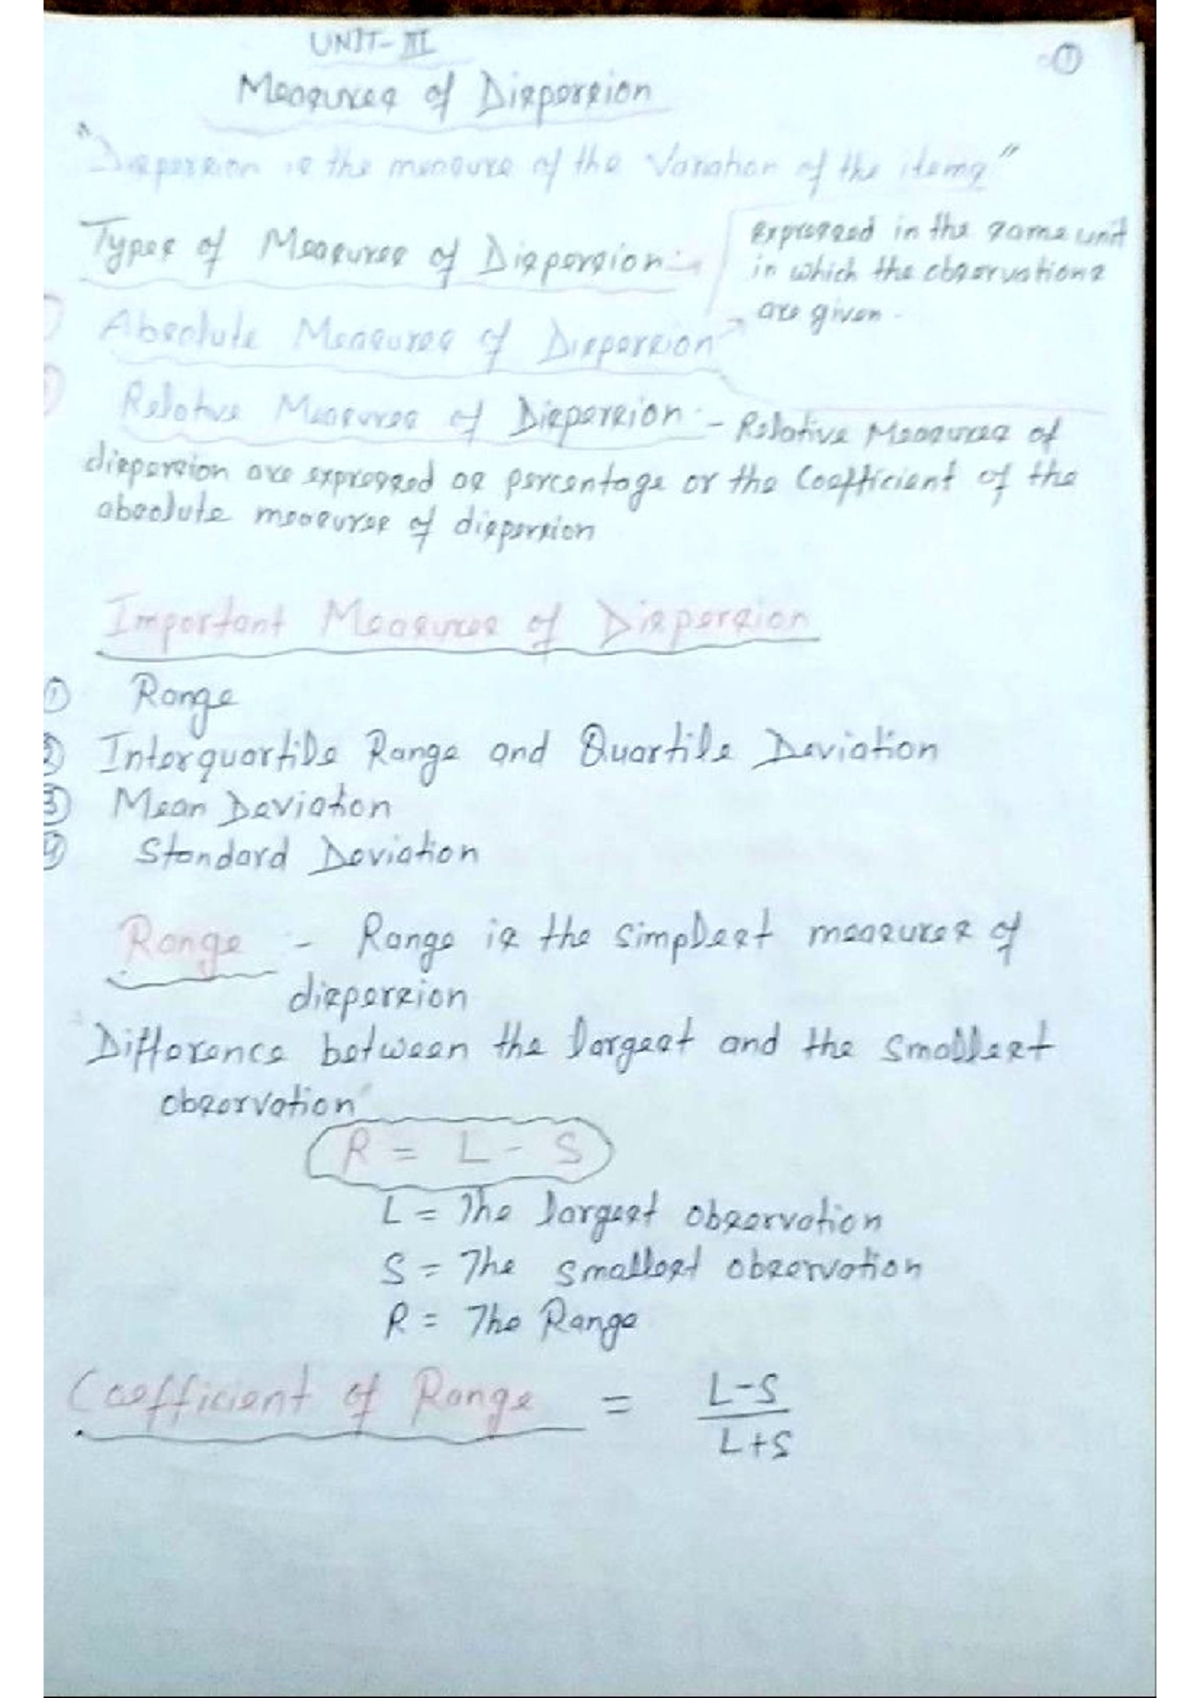 UNIT-III
①
Measures of Dispersion
"Dispersion is the measure of the Variation of the items"
Types of Measures of Dispersion:-
expressed in the same unit
in which the observations
are given.
Absolute Measures of Dispersion
Relative Measures of Dispersion:- Relative Measures of
dispersion are expressed as percentage or the Coefficient of the
absolute measures of dispersion
Important Measures of Dispersion
① Range
② Interquartile Range and Quartile Deviation
③ Mean Deviation
④ Standard Deviation
Range - Range is the simplest measures of
dispersion
Difference between the largest and the smallest
observation"
R = L - S
L = The largest observation
S = The smallest observation
R = The Range
Coefficient of Range = L-S
L+S